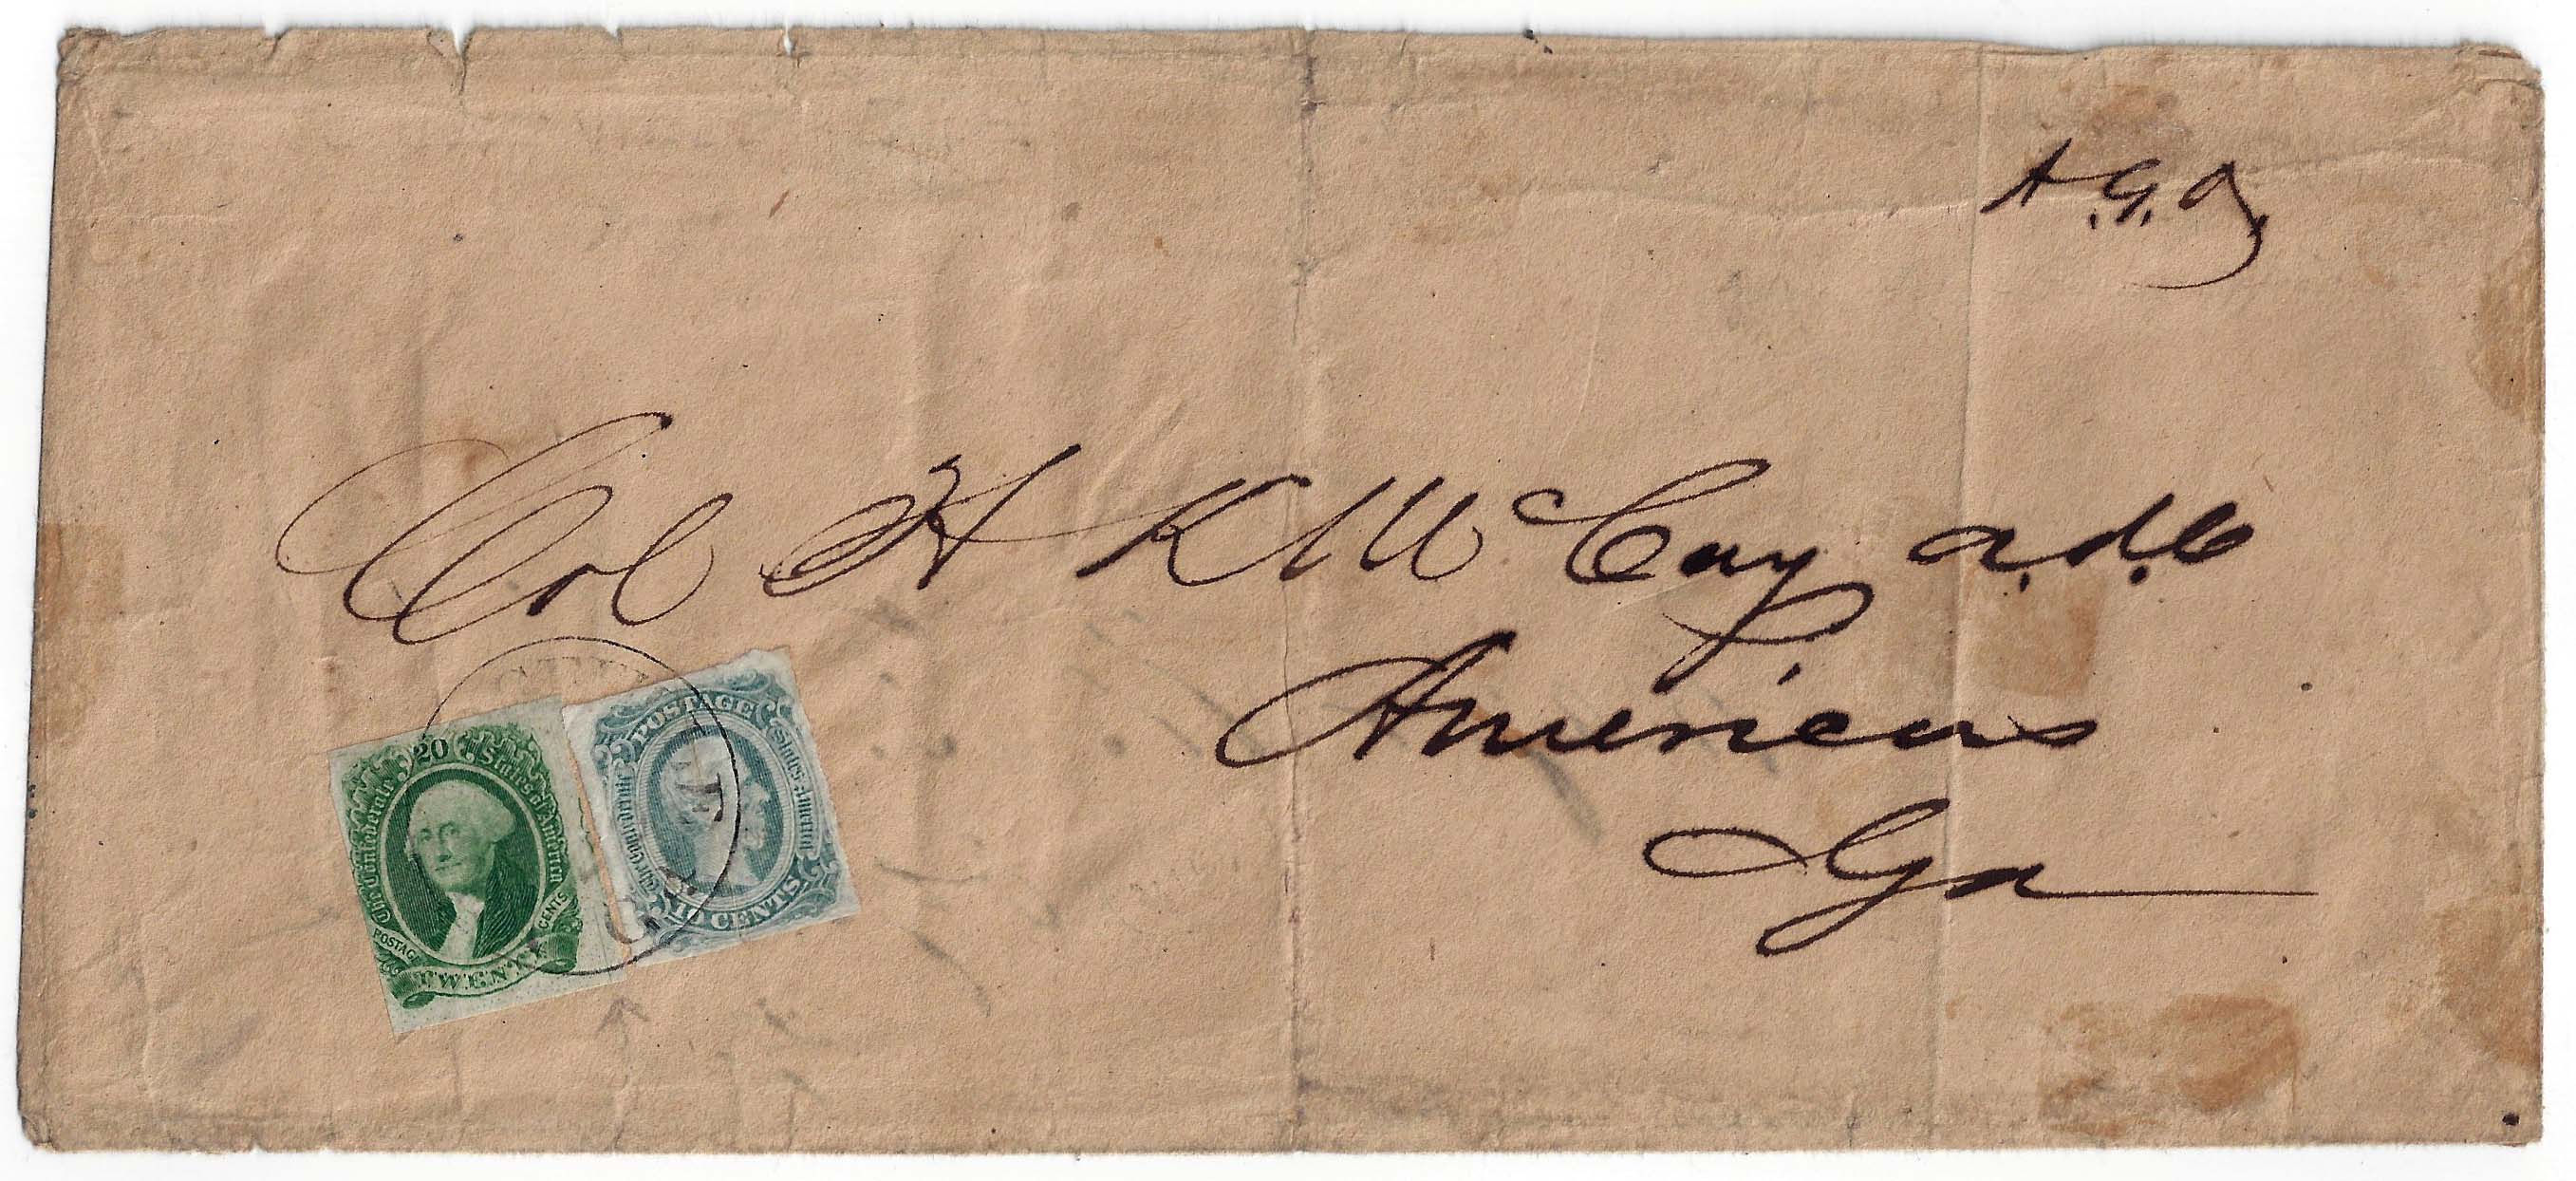 A.G.O.
Col H K McCay a.d.c
Americus
Ga
20
The Confederate States of America
POSTAGE
CENTS
TWENTY
POSTAGE
The Confederate States America
10 CENTS